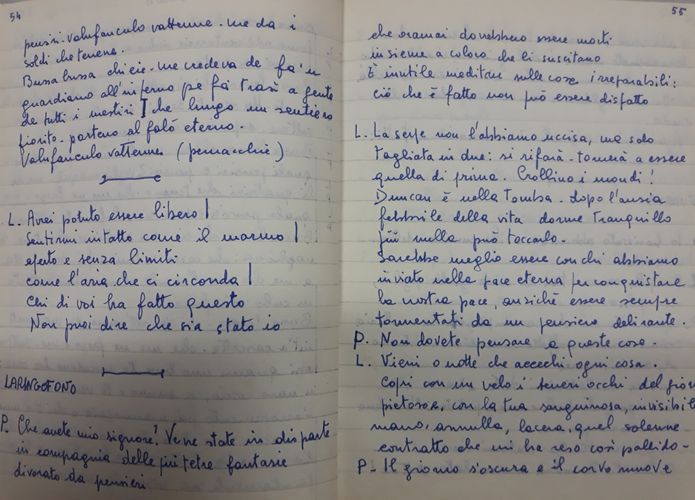 54
pensi. Vahufanculo vattenne. me da i
soldi che tenene.
Bussa bussa chi cie. me credeva de fa' u
guardiano all'inferno pe fa trasì a gente
de tutti i mestieri che lungo un sentiero
fiorito. portano al falò eterno.
Vahufanculo vattenne (pernacchie)
L. Avrei potuto essere libero!
Sentirmi intatto come il marmo!
aperto e senza limiti
come l'aria che ci circonda!
Chi di voi ha fatto questo
Non puoi dire che sia stato io
LARINGOFONO
P. Che avete mio signore? Ve ne state in disparte
in compagnia delle più tetre fantasie
divorato da pensieri
55
che oramai dovrebbero essere morti
insieme a coloro che li suscitano
È inutile meditare sulle cose irreparabili:
ciò che è fatto non può essere disfatto
L. La serpe non l'abbiamo uccisa, ma solo
tagliata in due: si rifarà. tornerà a essere
quella di prima. Crollino i mondi!
Duncan è nella tomba. dopo l'ansia
febbrile della vita dorme tranquillo
più nulla può toccarlo.
Sarebbe meglio essere con chi abbiamo
inviato nella pace eterna per conquistare
la nostra pace, anziché essere sempre
tormentati da un pensiero delirante.
P. Non dovete pensare a queste cose.
L. Vieni o notte che accechi ogni cosa.
Copri con un velo i teneri occhi del gior
pietosa e, con la tua sanguinosa, invisibil
mano, annulla, lacera, quel solenne
contratto che mi ha reso così pallido.
P. Il giorno s'oscura e il corvo muove